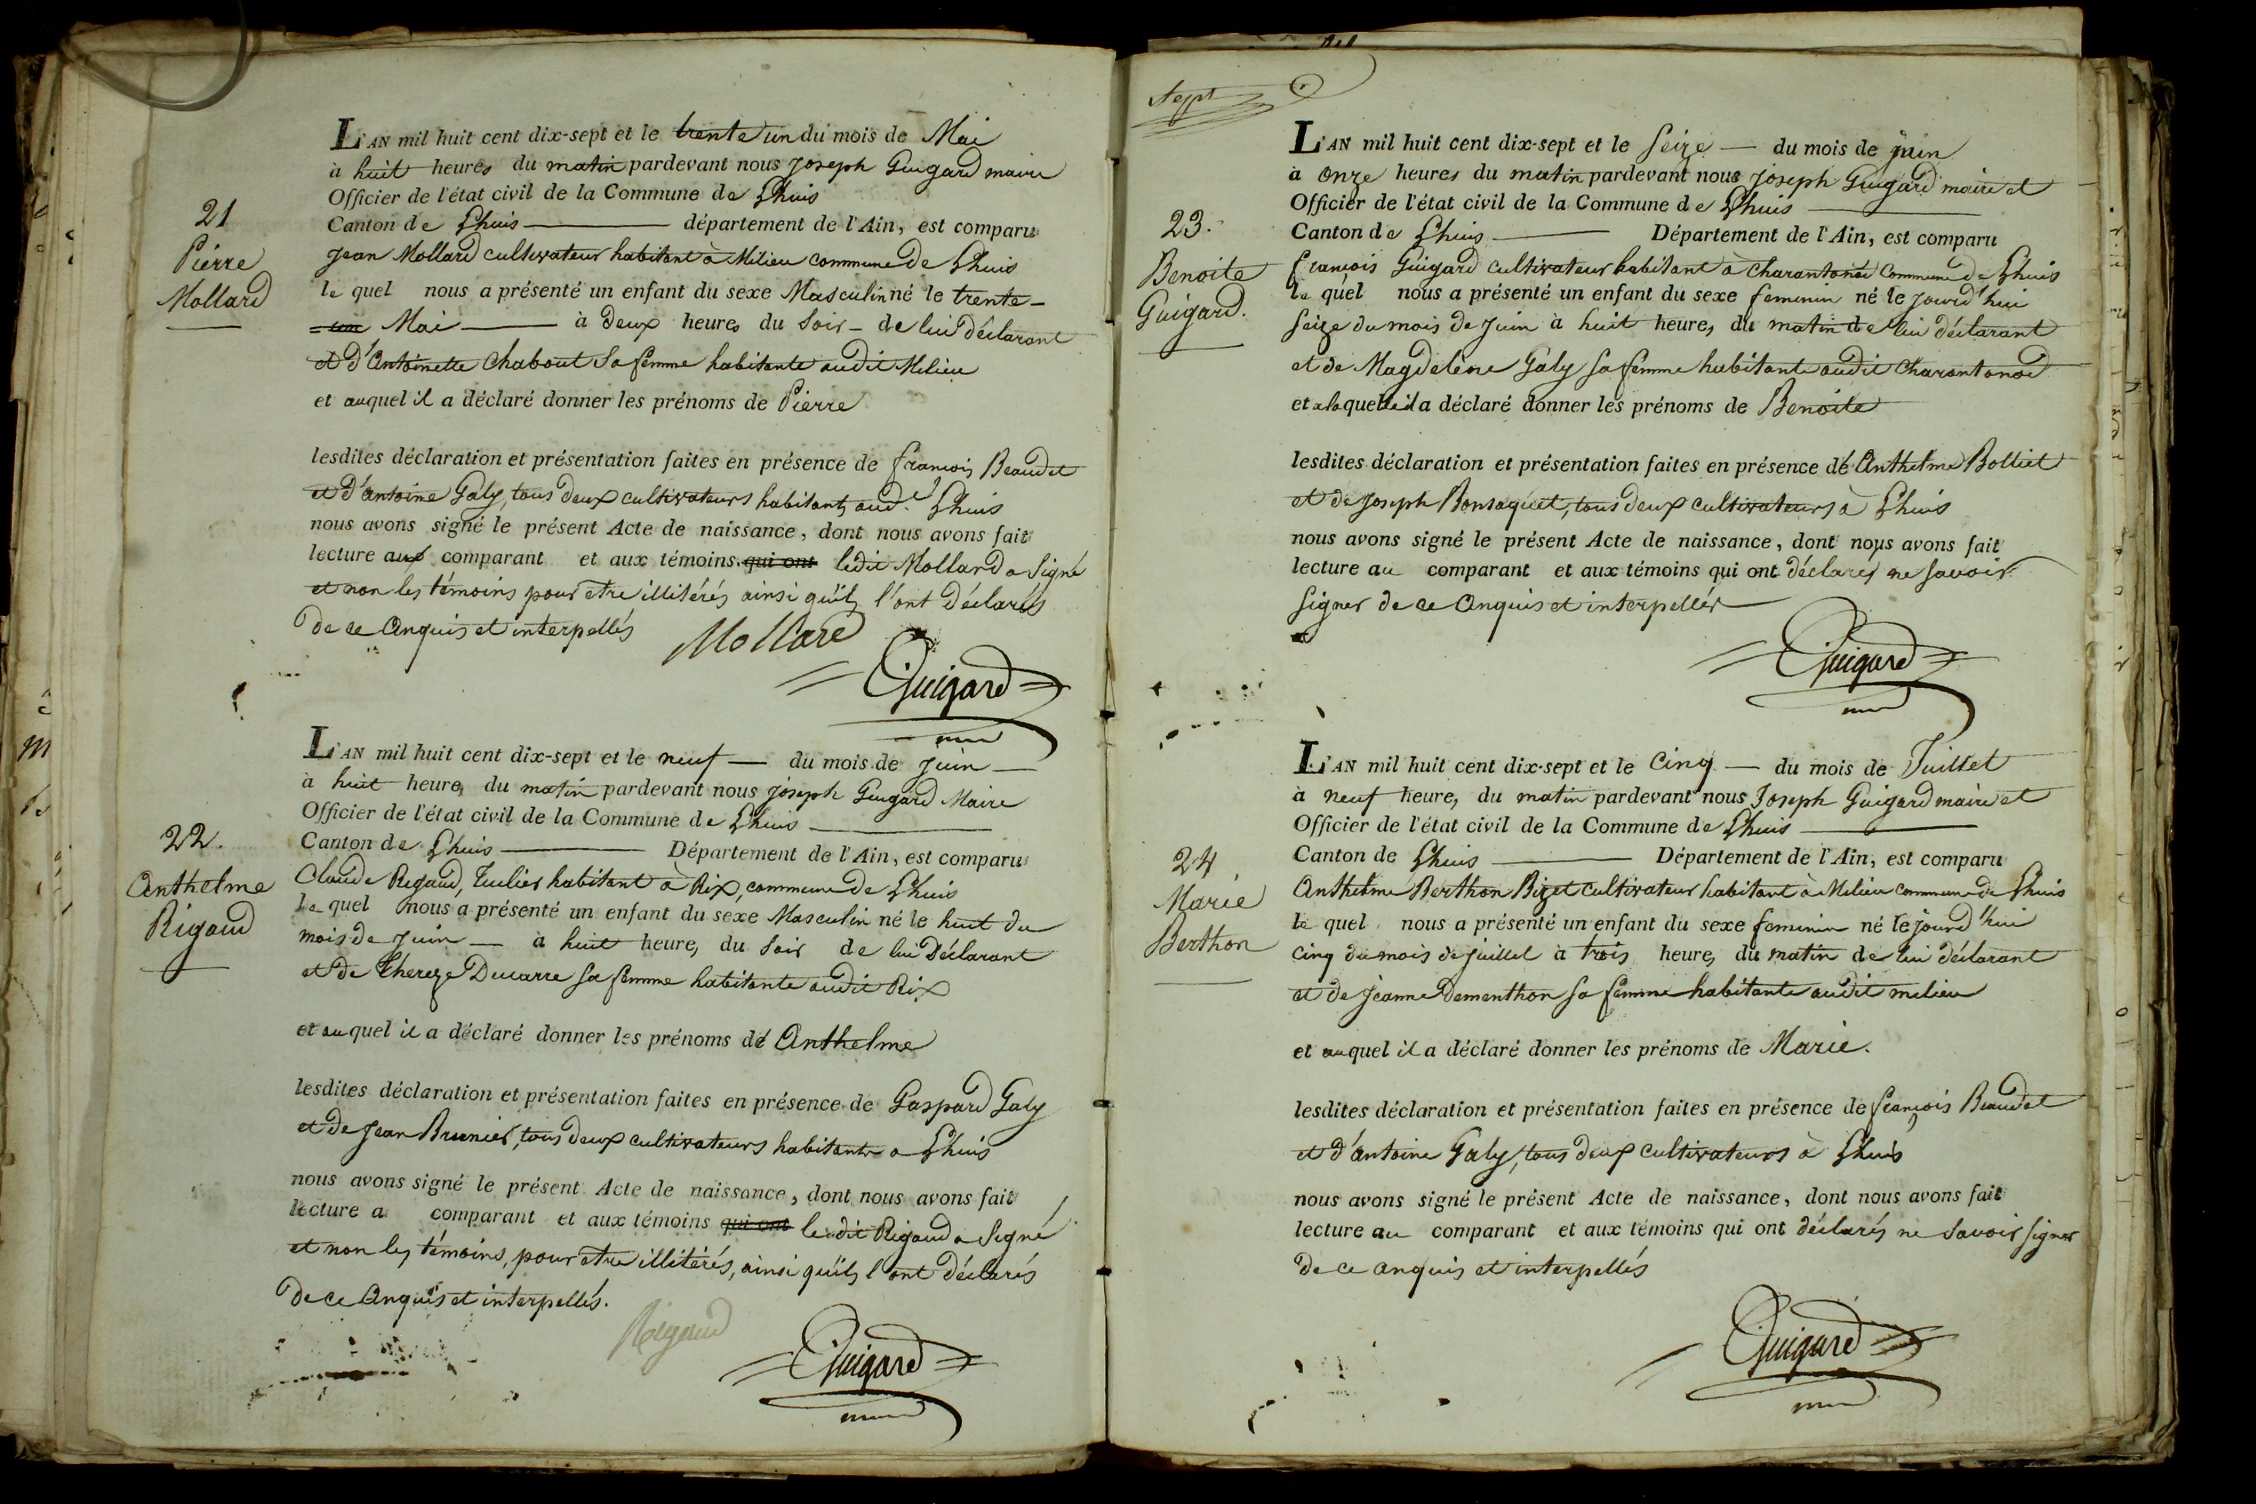 21
Pierre
Mollard
L'AN mil huit cent dix-sept et le trente un du mois de Mai
à huit heures du matin pardevant nous Joseph Guigard maire
Officier de l'état civil de la Commune de Lhuis
Canton de Lhuis département de l'Ain, est comparu
Jean Mollard cultivateur habitant à Milieu commune de Lhuis
le quel nous a présenté un enfant du sexe Masculin né le trente
un Mai à deux heures du soir de lui déclarant
et d'Antoinette Chabout sa femme habitante audit Milieu
et auquel il a déclaré donner les prénoms de Pierre
lesdites déclaration et présentation faites en présence de françois Beaudet
et d'antoine Galy, tous deux cultivateurs habitants aud.t Lhuis
nous avons signé le présent Acte de naissance, dont nous avons fait
lecture aux comparant et aux témoins qui ont ledit Mollard a Signé
et non les témoins pour etre illitérés ainsi qu'ils l'ont déclarés
de ce Anquis et interpellés
Mollard
Guigard
22.
Anthelme
Rigaud
L'AN mil huit cent dix-sept et le neuf du mois de Juin
à huit heures du matin pardevant nous joseph Guigard Maire
Officier de l'état civil de la Commune de Lhuis
Canton de Lhuis Département de l'Ain, est comparu
Claude Rigaud, Tuilier habitant à Rix, commune de Lhuis
le quel nous a présenté un enfant du sexe Masculin né le huit du
mois de Juin à huit heures du soir de lui Déclarant
et de Thereze Ducarre sa femme habitante audit Rix
et auquel il a déclaré donner les prénoms de Anthelme
lesdites déclaration et présentation faites en présence de Gaspard Galy
et de Jean Brunier, tous deux cultivateurs habitants a Lhuis
nous avons signé le présent Acte de naissance, dont nous avons fait
lecture a comparant et aux témoins qui ont ledit Rigaud a Signé
et non les témoins, pour etre illitérés, ainsi qu'ils l'ont déclarés
de ce Anquis et interpellés.
Rigaud
Guigard
Sept
23.
Benoite
Guigard.
L'AN mil huit cent dix-sept et le Seize du mois de juin
à onze heures du matin pardevant nous Joseph Guigard maire et
Officier de l'état civil de la Commune de Lhuis
Canton de Lhuis Département de l'Ain, est comparu
françois Guigard cultivateur habitant à Charantonod commune de Lhuis
le quel nous a présenté un enfant du sexe feminin né le jourd'hui
Seize du mois de Juin à huit heures du matin de lui déclarant
et de Magdelene Galy sa femme habitante audit Charantonod
et a laquelle il a déclaré donner les prénoms de Benoite
lesdites déclaration et présentation faites en présence de Anthelme Bolliet
et de Joseph Bonsaquet, tous deux cultivateurs à Lhuis
nous avons signé le présent Acte de naissance, dont nous avons fait
lecture au comparant et aux témoins qui ont déclarés ne savoir
signer de ce Anquis et interpellés
Guigard
24
Marie
Berthon
L'AN mil huit cent dix-sept et le Cinq du mois de Juillet
à neuf heures du matin pardevant nous Joseph Guigard maire et
Officier de l'état civil de la Commune de Lhuis
Canton de Lhuis Département de l'Ain, est comparu
Anthelme Berthon Bizet cultivateur habitant à Milieu commune de Lhuis
le quel nous a présenté un enfant du sexe feminin né le jourd'hui
cinq du mois de juillet à trois heures du matin de lui déclarant
et de Jeanne Dementhon sa femme habitante audit milieu
et auquel il a déclaré donner les prénoms de Marie.
lesdites déclaration et présentation faites en présence de françois Beaudet
et d'antoine Galy, tous deux cultivateurs à Lhuis
nous avons signé le présent Acte de naissance, dont nous avons fait
lecture au comparant et aux témoins qui ont déclarés ne savoir signer
de ce anquis et interpellés
Guigard